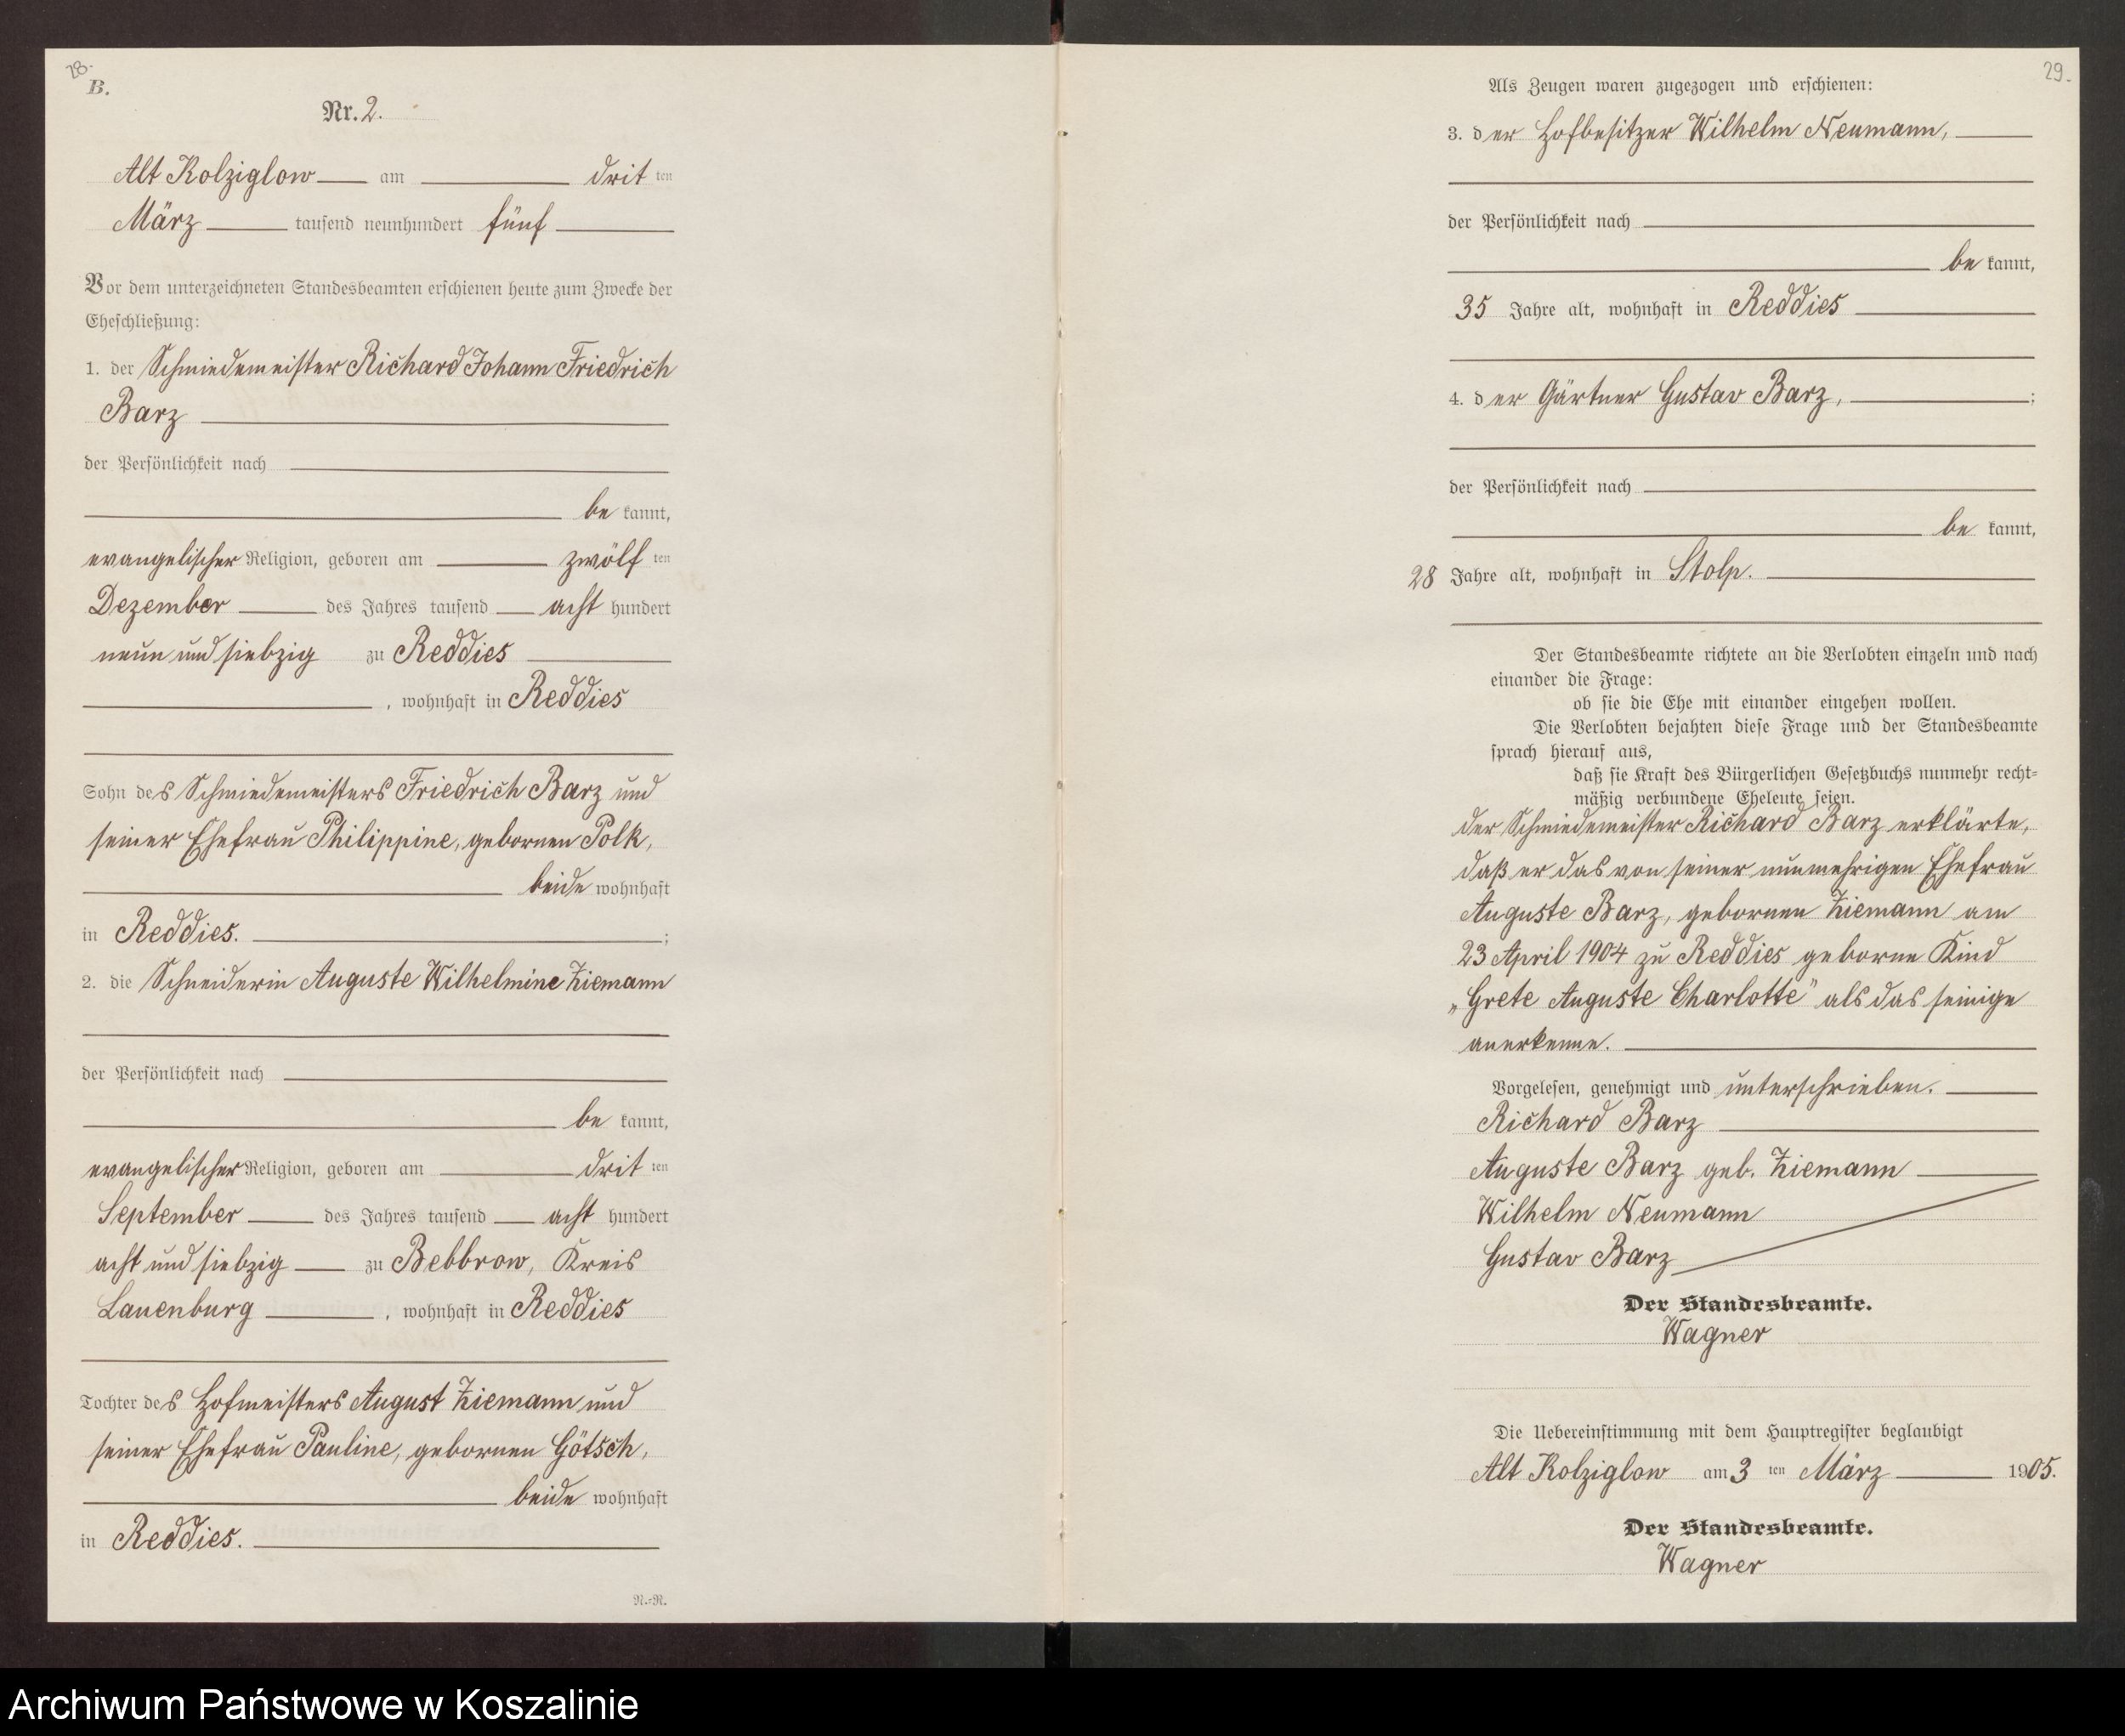 28.
B.
Nr. 2.
Alt Kolziglow am dritten
März tausend neunhundert fünf
Vor dem unterzeichneten Standesbeamten erschienen heute zum Zwecke der
Eheschließung:
1. der Schmiedemeister Richard Johann Friedrich
Barz
der Persönlichkeit nach
bekannt,
evangelischer Religion, geboren am zwölften
Dezember des Jahres tausend acht hundert
neun und siebzig zu Reddies
, wohnhaft in Reddies
Sohn des Schmiedemeisters Friedrich Barz und
seiner Ehefrau Philippine, gebornen Polk,
beide wohnhaft
in Reddies. ;
2. die Schneiderin Auguste Wilhelmine Ziemann
der Persönlichkeit nach
bekannt,
evangelischer Religion, geboren am dritten
September des Jahres tausend acht hundert
acht und siebzig zu Bebbrow, Kreis
Lauenburg , wohnhaft in Reddies
Tochter des Hofmeisters August Ziemann und
seiner Ehefrau Pauline, gebornen Götsch,
beide wohnhaft
in Reddies.
N.-R.
29.
Als Zeugen waren zugezogen und erschienen:
3. der Hofbesitzer Wilhelm Neumann,
der Persönlichkeit nach
bekannt,
35 Jahre alt, wohnhaft in Reddies
4. der Gärtner Gustav Barz, ;
der Persönlichkeit nach
bekannt,
28 Jahre alt, wohnhaft in Stolp.
Der Standesbeamte richtete an die Verlobten einzeln und nach
einander die Frage:
ob sie die Ehe mit einander eingehen wollen.
Die Verlobten bejahten diese Frage und der Standesbeamte
sprach hierauf aus,
daß sie Kraft des Bürgerlichen Gesetzbuchs nunmehr recht-
mäßig verbundene Eheleute seien.
Der Schmiedemeister Richard Barz erklärte,
daß er das von seiner nunmehrigen Ehefrau
Auguste Barz, gebornen Ziemann am
23 April 1904 zu Reddies geborne Kind
„Grete Auguste Charlotte" als das seinige
anerkenne.
Vorgelesen, genehmigt und unterschrieben.
Richard Barz
Auguste Barz geb. Ziemann
Wilhelm Neumann
Gustav Barz
Der Standesbeamte.
Wagner
Die Uebereinstimmung mit dem Hauptregister beglaubigt
Alt Kolziglow am 3 ten März 1905.
Der Standesbeamte.
Wagner
Archiwum Państwowe w Koszalinie